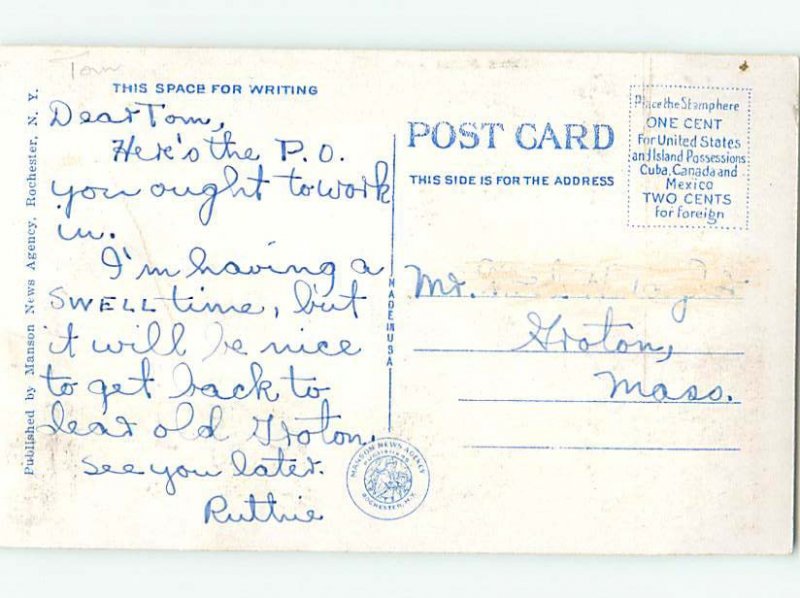 Tom
THIS SPACE FOR WRITING
Dear Tom,
Here's the P.O.
you ought to work
in.
I'm having a
SWELL time, but
it will be nice
to get back to
dear old Groton.
See you later.
Ruthie
Published by Manson News Agency, Rochester, N. Y.
MADE IN USA
MANSON NEWS AGENCY
PUBLISHERS
ROCHESTER, N.Y.
POST CARD
THIS SIDE IS FOR THE ADDRESS
Place the Stamp here
ONE CENT
For United States
and Island Possessions
Cuba, Canada and
Mexico
TWO CENTS
for foreign
Mr.
Groton,
Mass.